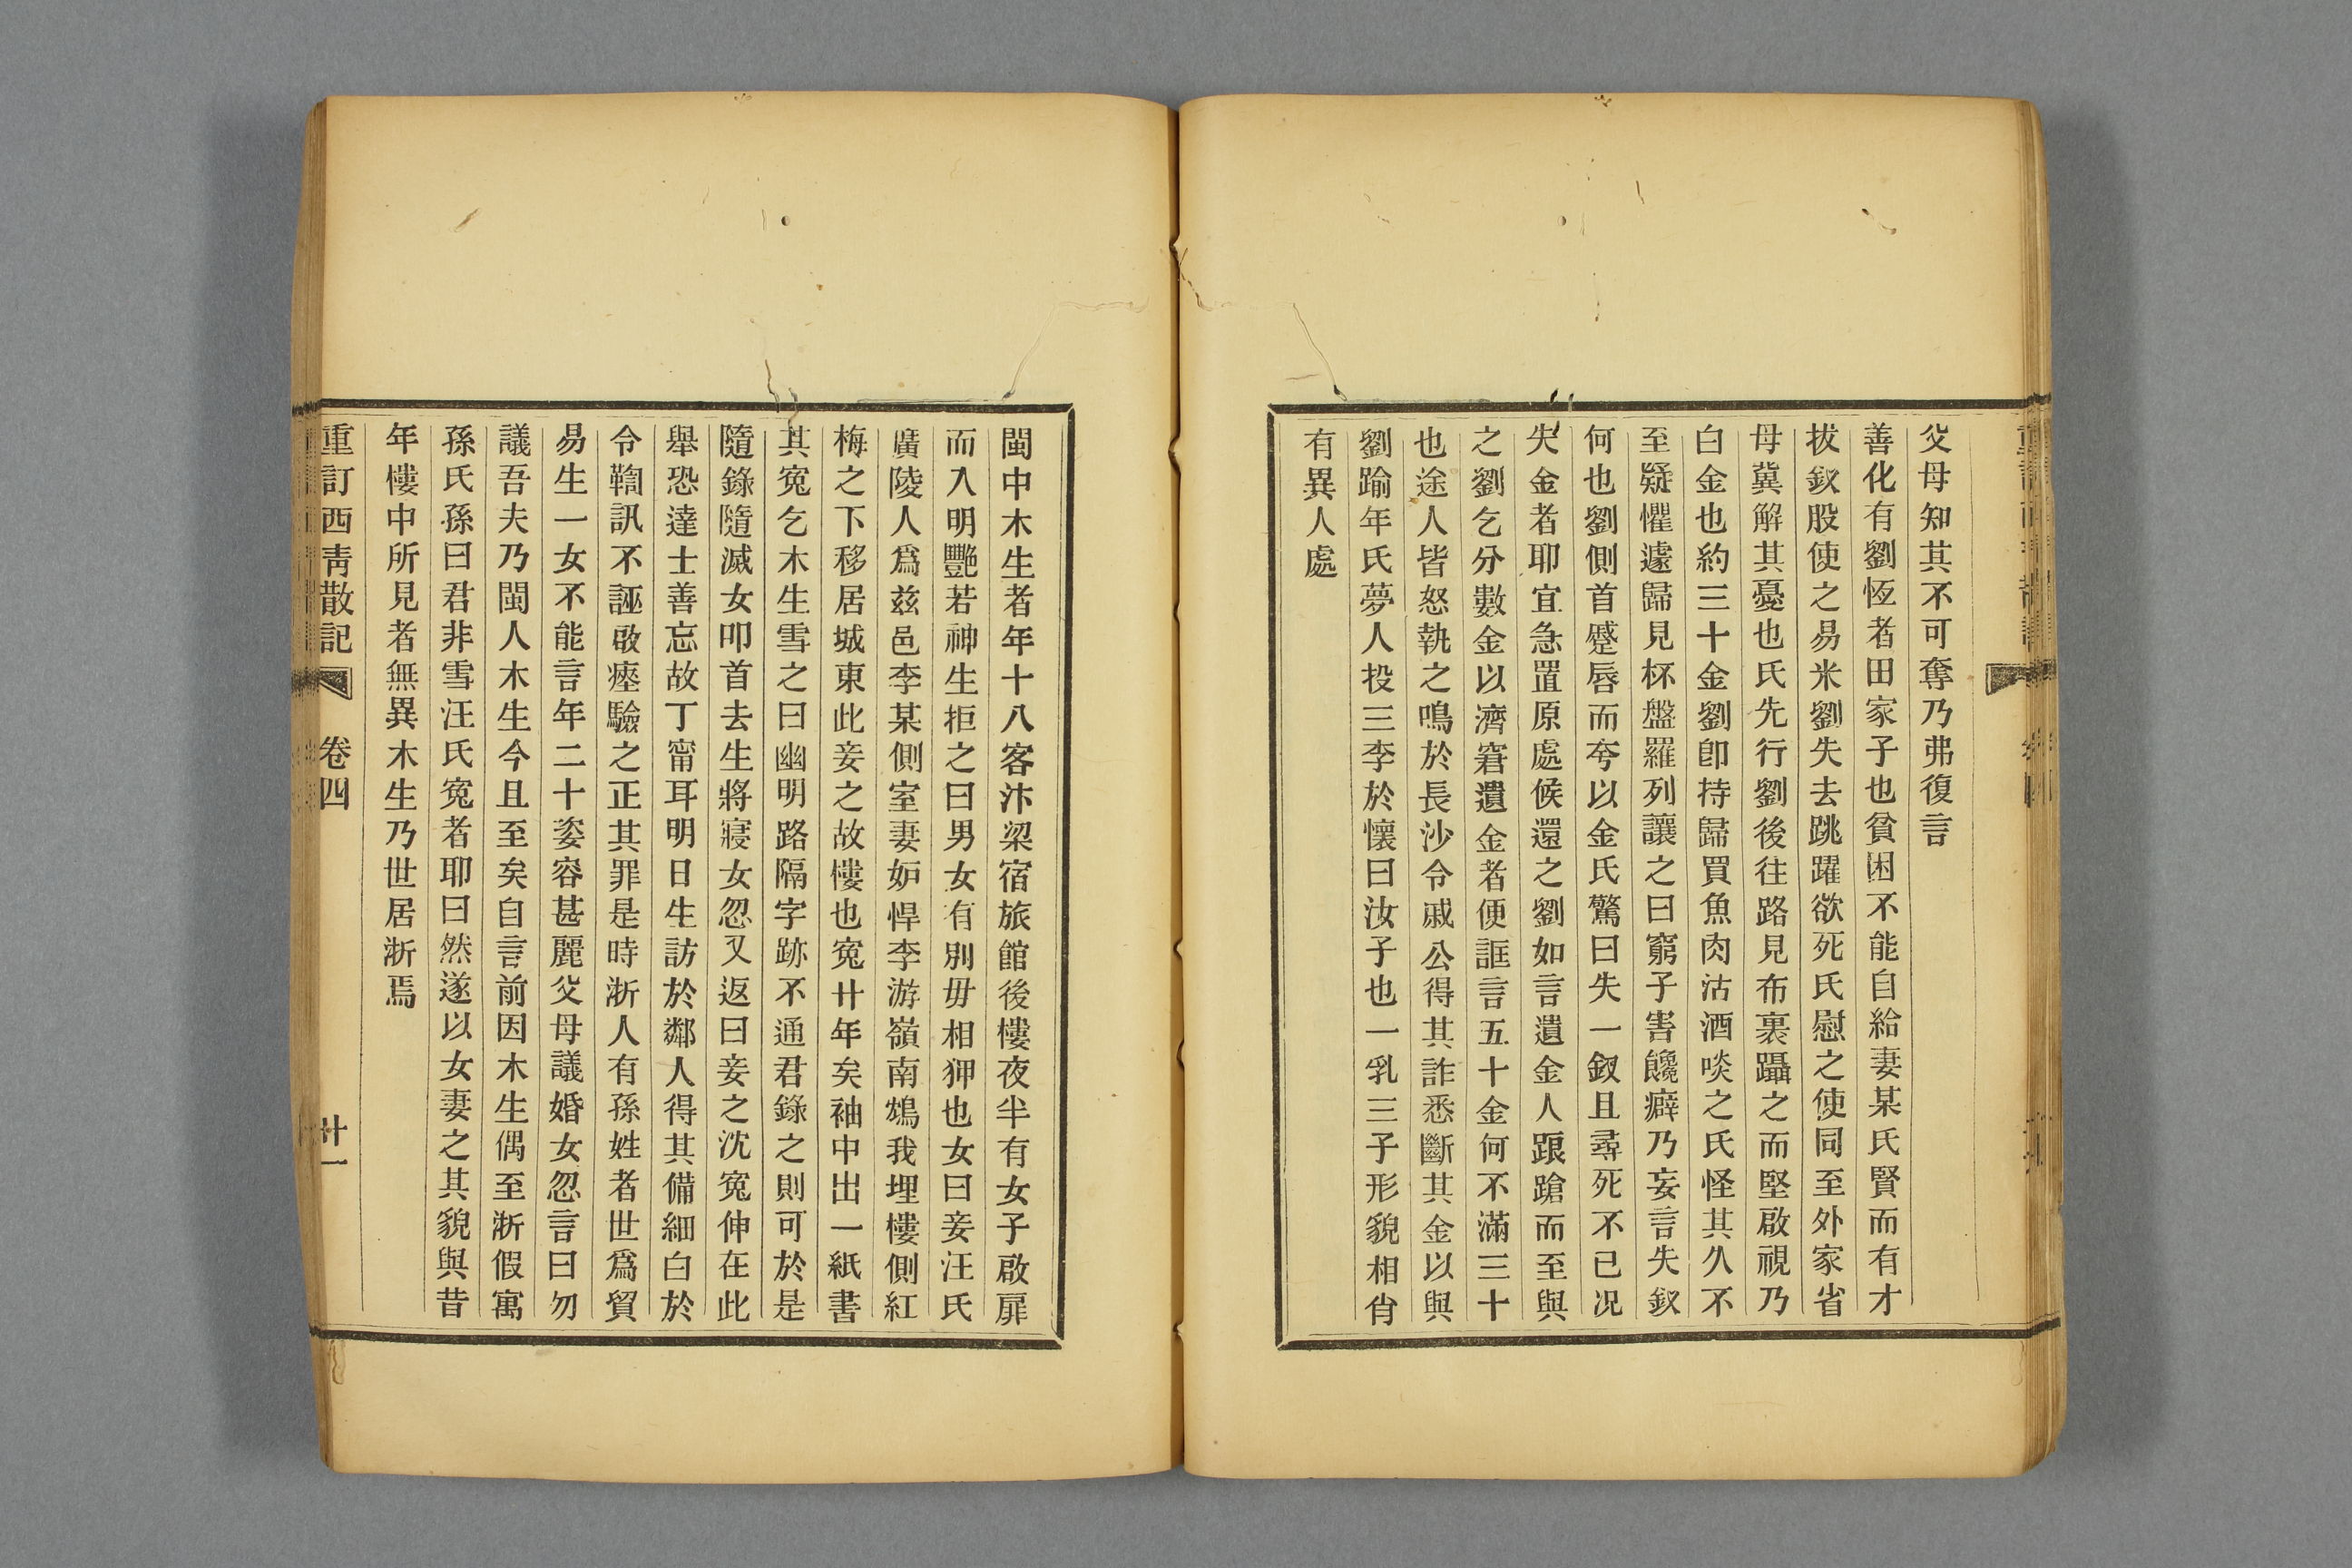 父母知其不可奪乃弗復言
善化有劉恆者田家子也貧困不能自給妻某氏賢而有才
拔釵股使之易米劉失去跳躍欲死氏慰之使同至外家省
母冀解其憂也氏先行劉後往路見布裹躡之而堅啟視乃
白金也約三十金劉卽持歸買魚肉沽酒啖之氏怪其久不
至疑懼遽歸見杯盤羅列讓之曰窮子害饞癖乃妄言失釵
何也劉側首蹙唇而夸以金氏驚曰失一釵且尋死不已况
失金者耶宜急置原處候還之劉如言遺金人踉蹌而至與
之劉乞分數金以濟窘遺金者便誆言五十金何不滿三十
也途人皆怒執之鳴於長沙令戚公得其詐悉斷其金以與
劉踰年氏夢人投三李於懷曰汝子也一乳三子形貌相肖
有異人處
閩中木生者年十八客汴梁宿旅館後樓夜半有女子啟扉
而入明艷若神生拒之曰男女有別毋相狎也女曰妾汪氏
廣陵人爲兹邑李某側室妻妒悍李游嶺南鴆我埋樓側紅
梅之下移居城東此妾之故樓也寃廿年矣袖中出一紙書
其寃乞木生雪之曰幽明路隔字跡不通君錄之則可於是
隨錄隨滅女叩首去生將寢女忽又返曰妾之沈寃伸在此
舉恐達士善忘故丁甯耳明日生訪於鄰人得其備細白於
令鞫訊不誣啟瘞驗之正其罪是時浙人有孫姓者世爲貿
易生一女不能言年二十姿容甚麗父母議婚女忽言曰勿
議吾夫乃閩人木生今且至矣自言前因木生偶至浙假寓
孫氏孫曰君非雪汪氏寃者耶曰然遂以女妻之其貌與昔
年樓中所見者無異木生乃世居浙焉
重訂西青散記 卷四 廿一